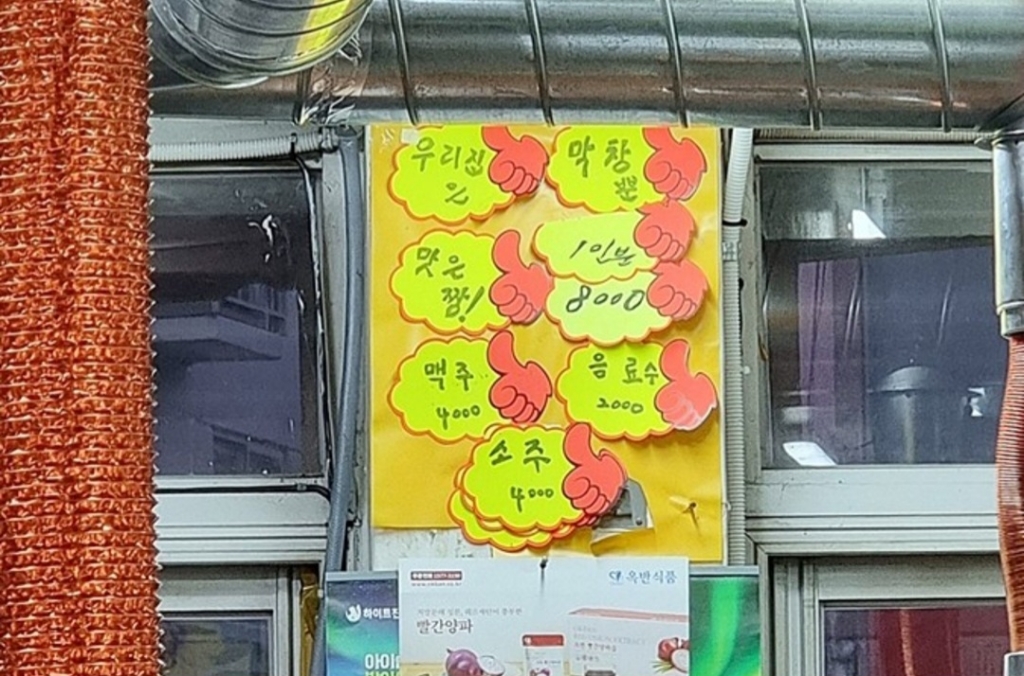 우리집
은
막창
뿐
맛은
짱!
1인분
8000
맥주
4000
음료수
2000
소주
4000
옥반식품
하이트진
빨간양파
아이